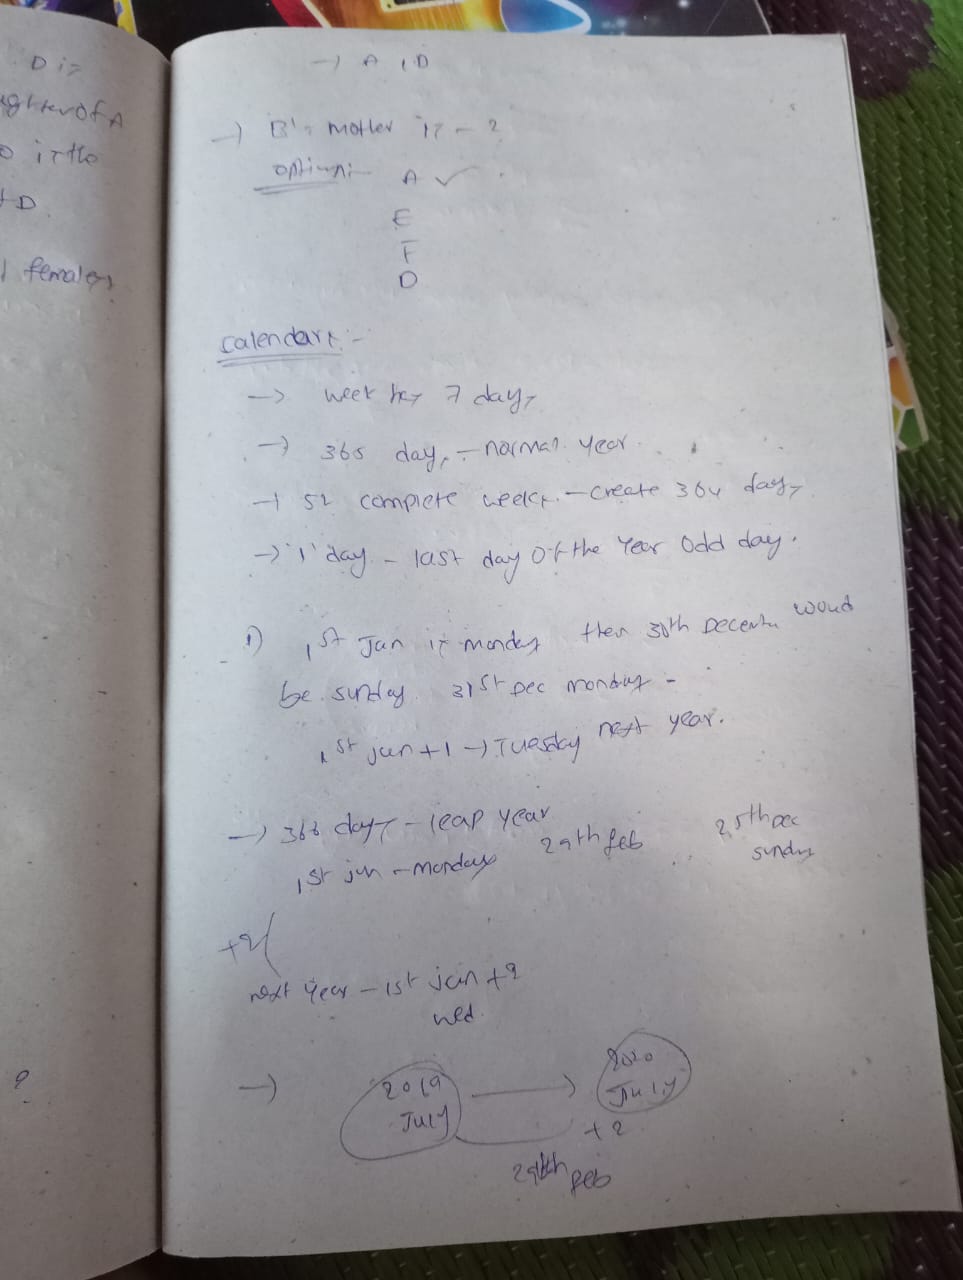 D is
ghter of A
D is the
D.
females
?
→ A, D
→ B's mother is - ?
options:-
A ✓
E
F
D
Calendars:-
→ week has 7 days
→ 365 days - normal year.
→ 52 complete weeks. - create 364 days
→ '1' day - last day of the Year odd day.
1) 1st Jan is monday then 30th would
be sunday. 31st Dec monday -
1st jan +1 → Tuesday next year.
→ 366 days - leap year
1st jan - monday 29th feb 25th Dec
sunday
+2
next year - 1st jan +2
wed.
→ 2019 → 2020
July July
+2
29th feb